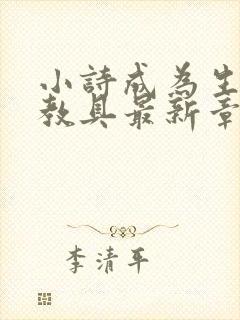 小詩成為生
教具最新章
李清平